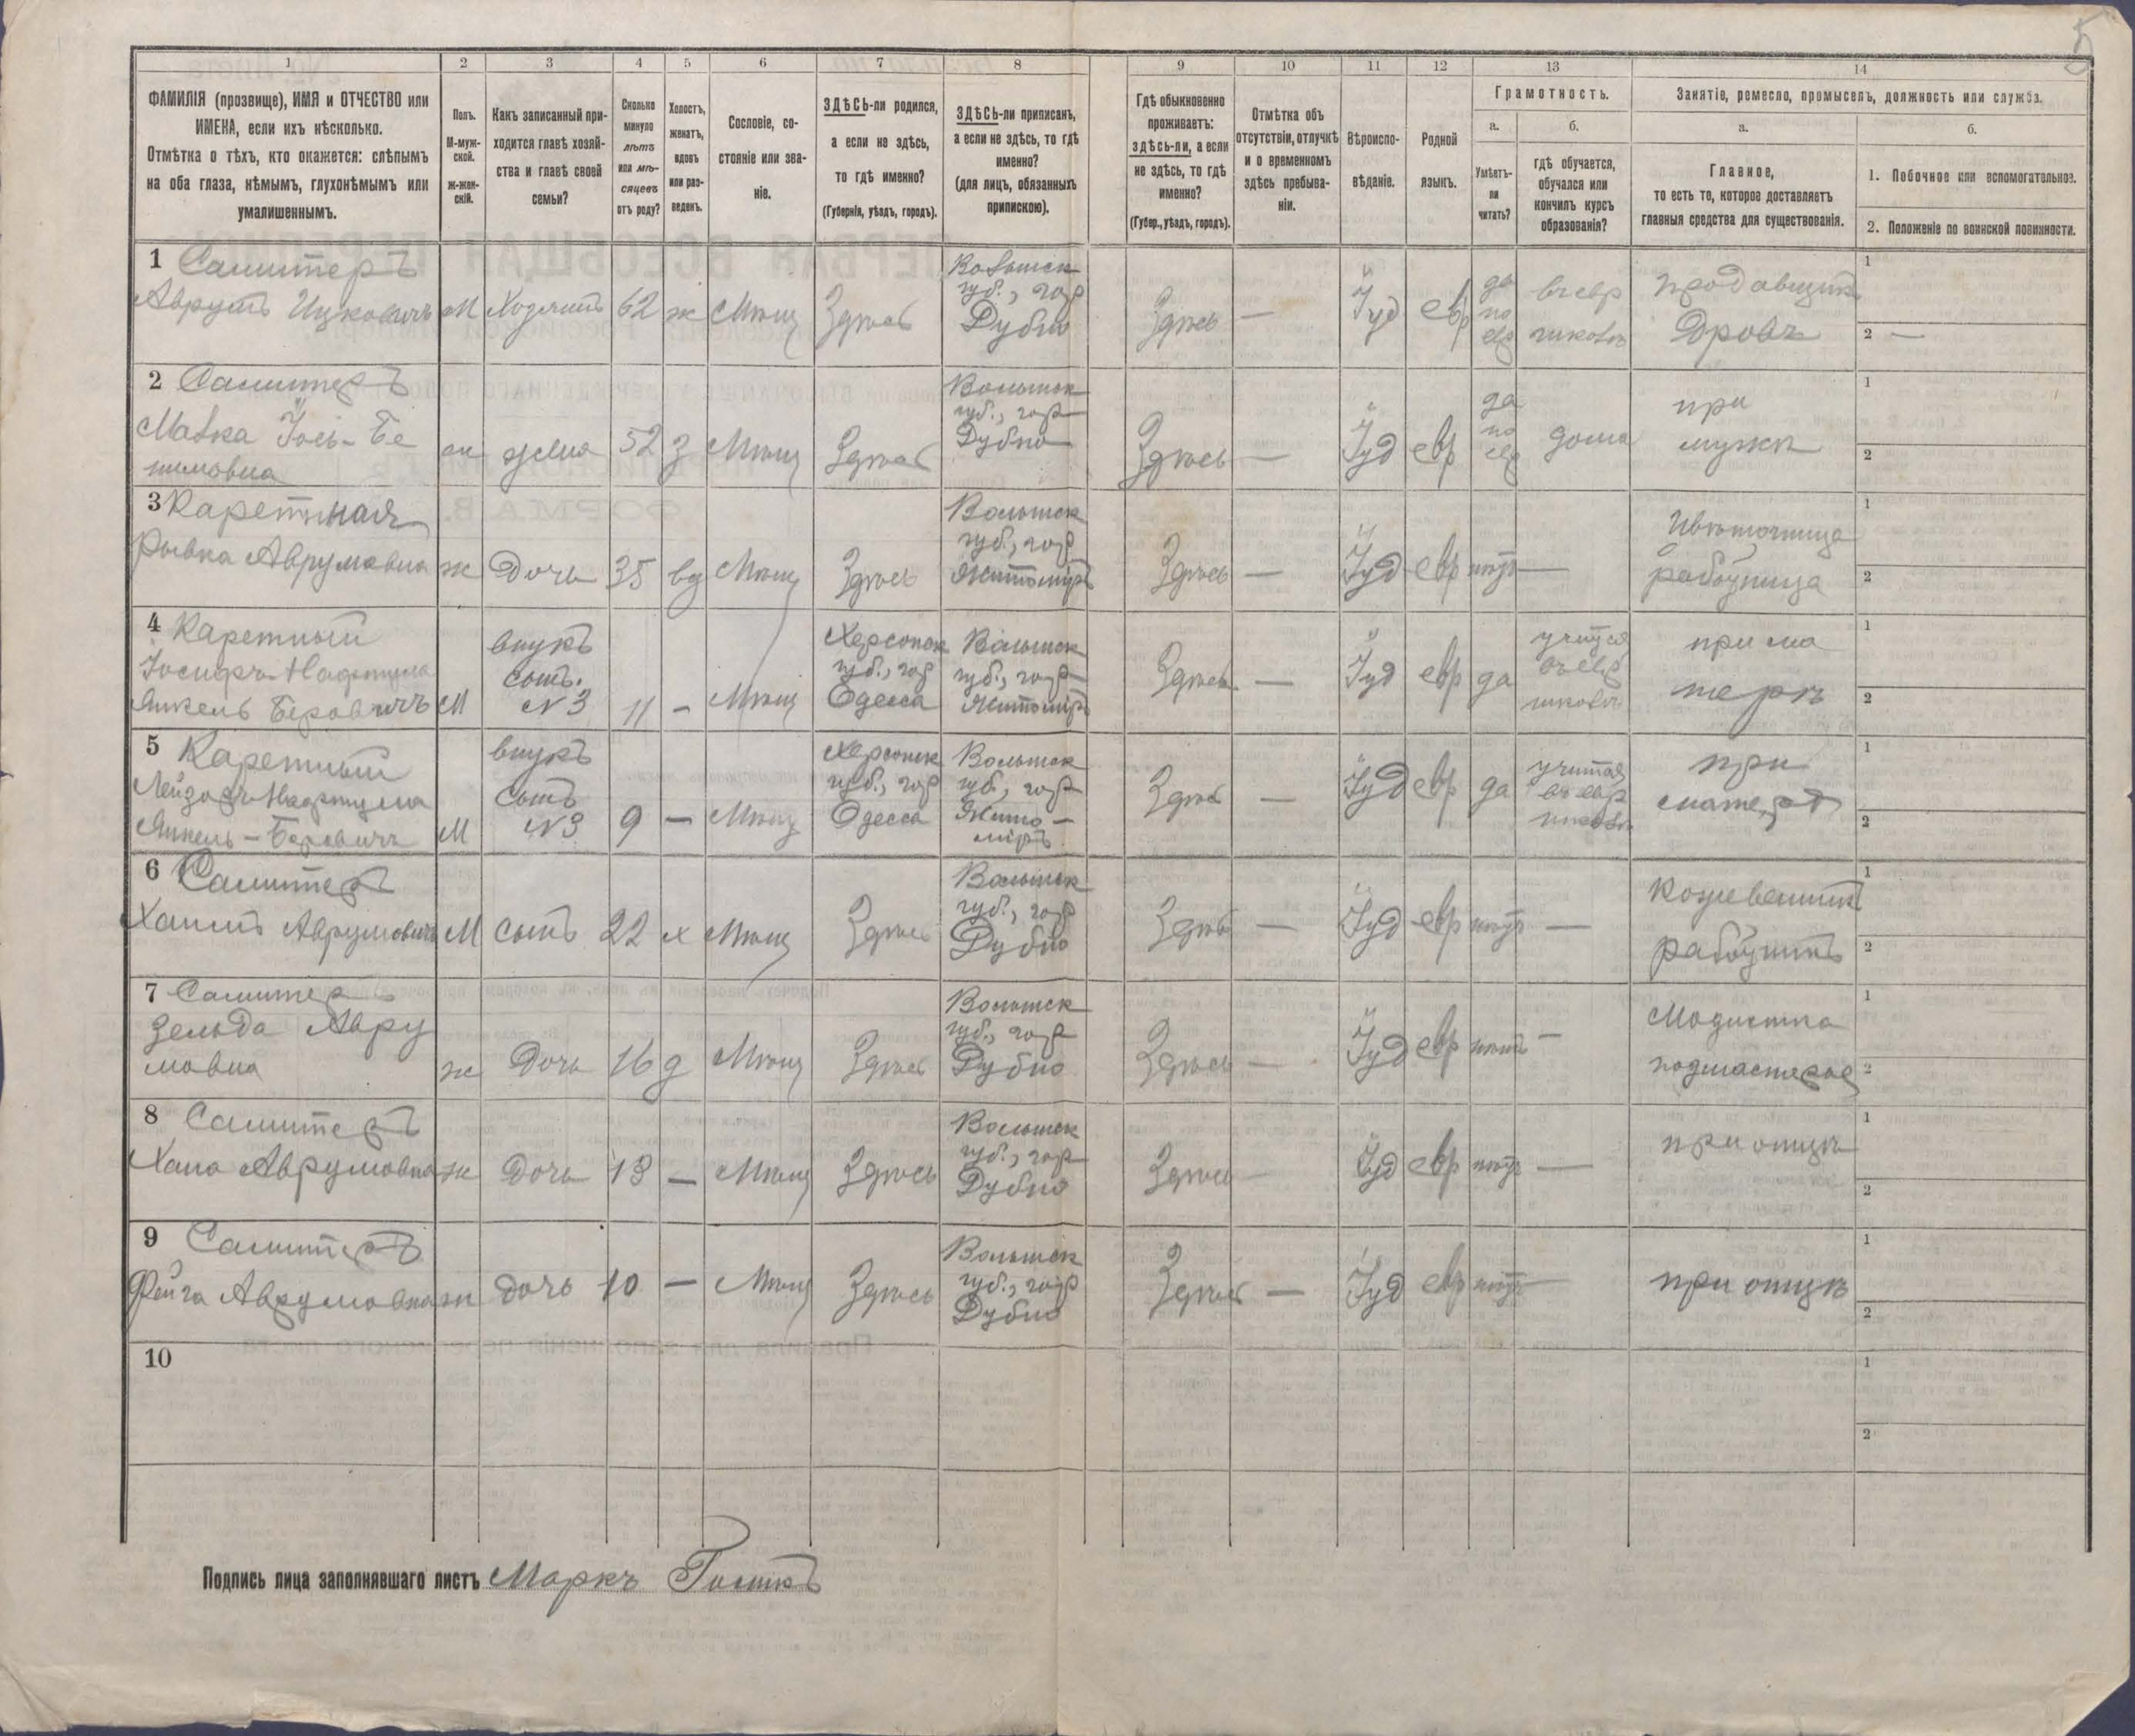 5
1 2 3 4 5 6 7 8 9 10 11 12 13 14
ФАМИЛІЯ (прозвище), ИМЯ и ОТЧЕСТВО или
ИМЕНА, если ихъ нѣсколько.
Отмѣтка о тѣхъ, кто окажется: слѣпымъ
на оба глаза, нѣмымъ, глухонѣмымъ или
умалишеннымъ.
Полъ.
М-муж-
ской.
ж-жен-
скій.
Какъ записанный при-
ходится главѣ хозяй-
ства и главѣ своей
семьи?
Сколько
минуло
лѣтъ
или мѣ-
сяцевъ
отъ роду?
Холостъ,
женатъ,
вдовъ
или раз-
веденъ.
Сословіе, со-
стояніе или зва-
ніе.
ЗДѢСЬ-ли родился,
а если не здѣсь,
то гдѣ именно?
(Губернія, уѣздъ, городъ).
ЗДѢСЬ-ли приписанъ,
а если не здѣсь, то гдѣ
именно?
(для лицъ, обязанныхъ
припискою).
Гдѣ обыкновенно
проживаетъ:
здѣсь-ли, а если
не здѣсь, то гдѣ
именно?
(Губер., уѣздъ, городъ).
Отмѣтка объ
отсутствіи, отлучкѣ
и о временномъ
здѣсь пребыва-
ніи.
Вѣроиспо-
вѣданіе.
Родной
языкъ.
Грамотность.
а.
Умѣетъ-
ли
читать?
б.
гдѣ обучается,
обучался или
кончилъ курсъ
образованія?
Занятіе, ремесло, промыселъ, должность или служба.
а.
Главное,
то есть то, которое доставляетъ
главныя средства для существованія.
б.
1. Побочное или вспомогательное.
2. Положеніе по воинской повинности.
1
Аврумъ Ицковичъ М 62 ж Мѣщ Здѣсь
Волынск
губ., гор
Дубно
Здѣсь — Іуд евр
да
по
евр
въ евр
школѣ
продавщикъ
дровъ
1
2 —
2
ж жена 52 з Мѣщ Здѣсь
Волынск
губ., гор
Дубно
Здѣсь — Іуд евр
да
по
евр
дома
при
мужѣ
1
2
3 Каретная
Рывка Аврумовна ж Дочь 35 вд Мѣщ Здѣсь
Волынск
губ., гор
Житоміръ
Здѣсь — Іуд евр нѣтъ —
Цвѣточница
работница
1
2
4 Каретный
Іосифъ-Нафтула
Янкель Беровичъ М
внукъ
сынъ
№3
11 — Мѣщ
Херсонск
губ., гор
Одесса
Волынск
губ., гор
Житоміръ
Здѣсь — Іуд евр да
учится
въ евр
школѣ
при ма
терѣ
1
2
5 Каретный
Нафтула
Янкель-Беровичъ М
внукъ
сынъ
№3
9 — Мѣщ
Херсонск
губ., гор
Одесса
Волынск
губ., гор
Жито-
міръ
Здѣсь — Іуд евр да
учится
въ евр
школѣ
при
1
2
6
Хаимъ Аврумовичъ М сынъ 22 х Мѣщ Здѣсь
Волынск
губ., гор
Дубно
Здѣсь — Іуд евр нѣтъ —
Кожевенный
работникъ
1
2
7
Зельда Авру
мовна ж Дочь 16 д Мѣщ Здѣсь
Волынск
губ., гор
Дубно
Здѣсь — Іуд евр нѣтъ —
Модистка
1
2
8
Хана Аврумовна ж Дочь 13 — Мѣщ Здѣсь
Волынск
губ., гор
Дубно
Здѣсь — Іуд евр нѣтъ —
при отцѣ
1
2
9
Фейга Аврумовна ж дочь 10 — Мѣщ Здѣсь
Волынск
губ., гор
Дубно
Здѣсь — Іуд евр нѣтъ —
при отцѣ
1
2
10
1
2
Подпись лица заполнявшаго листъ Маркъ